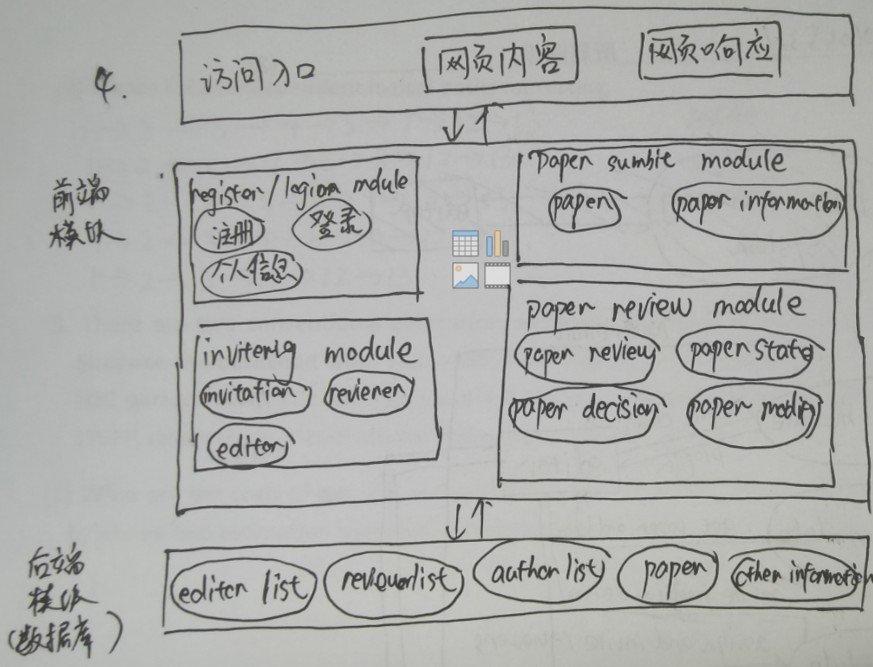 4.
访问入口 网页内容 网页响应
前端
模块
register/logion mdule
注册 登录
个人信息
paper sumbte module
paper paper information
inviterig module
invitation reviener
editor
paper review module
paper review paper state
paper decision paper modify
后端
模块
(数据库)
editor list reviewerlist author list paper other information